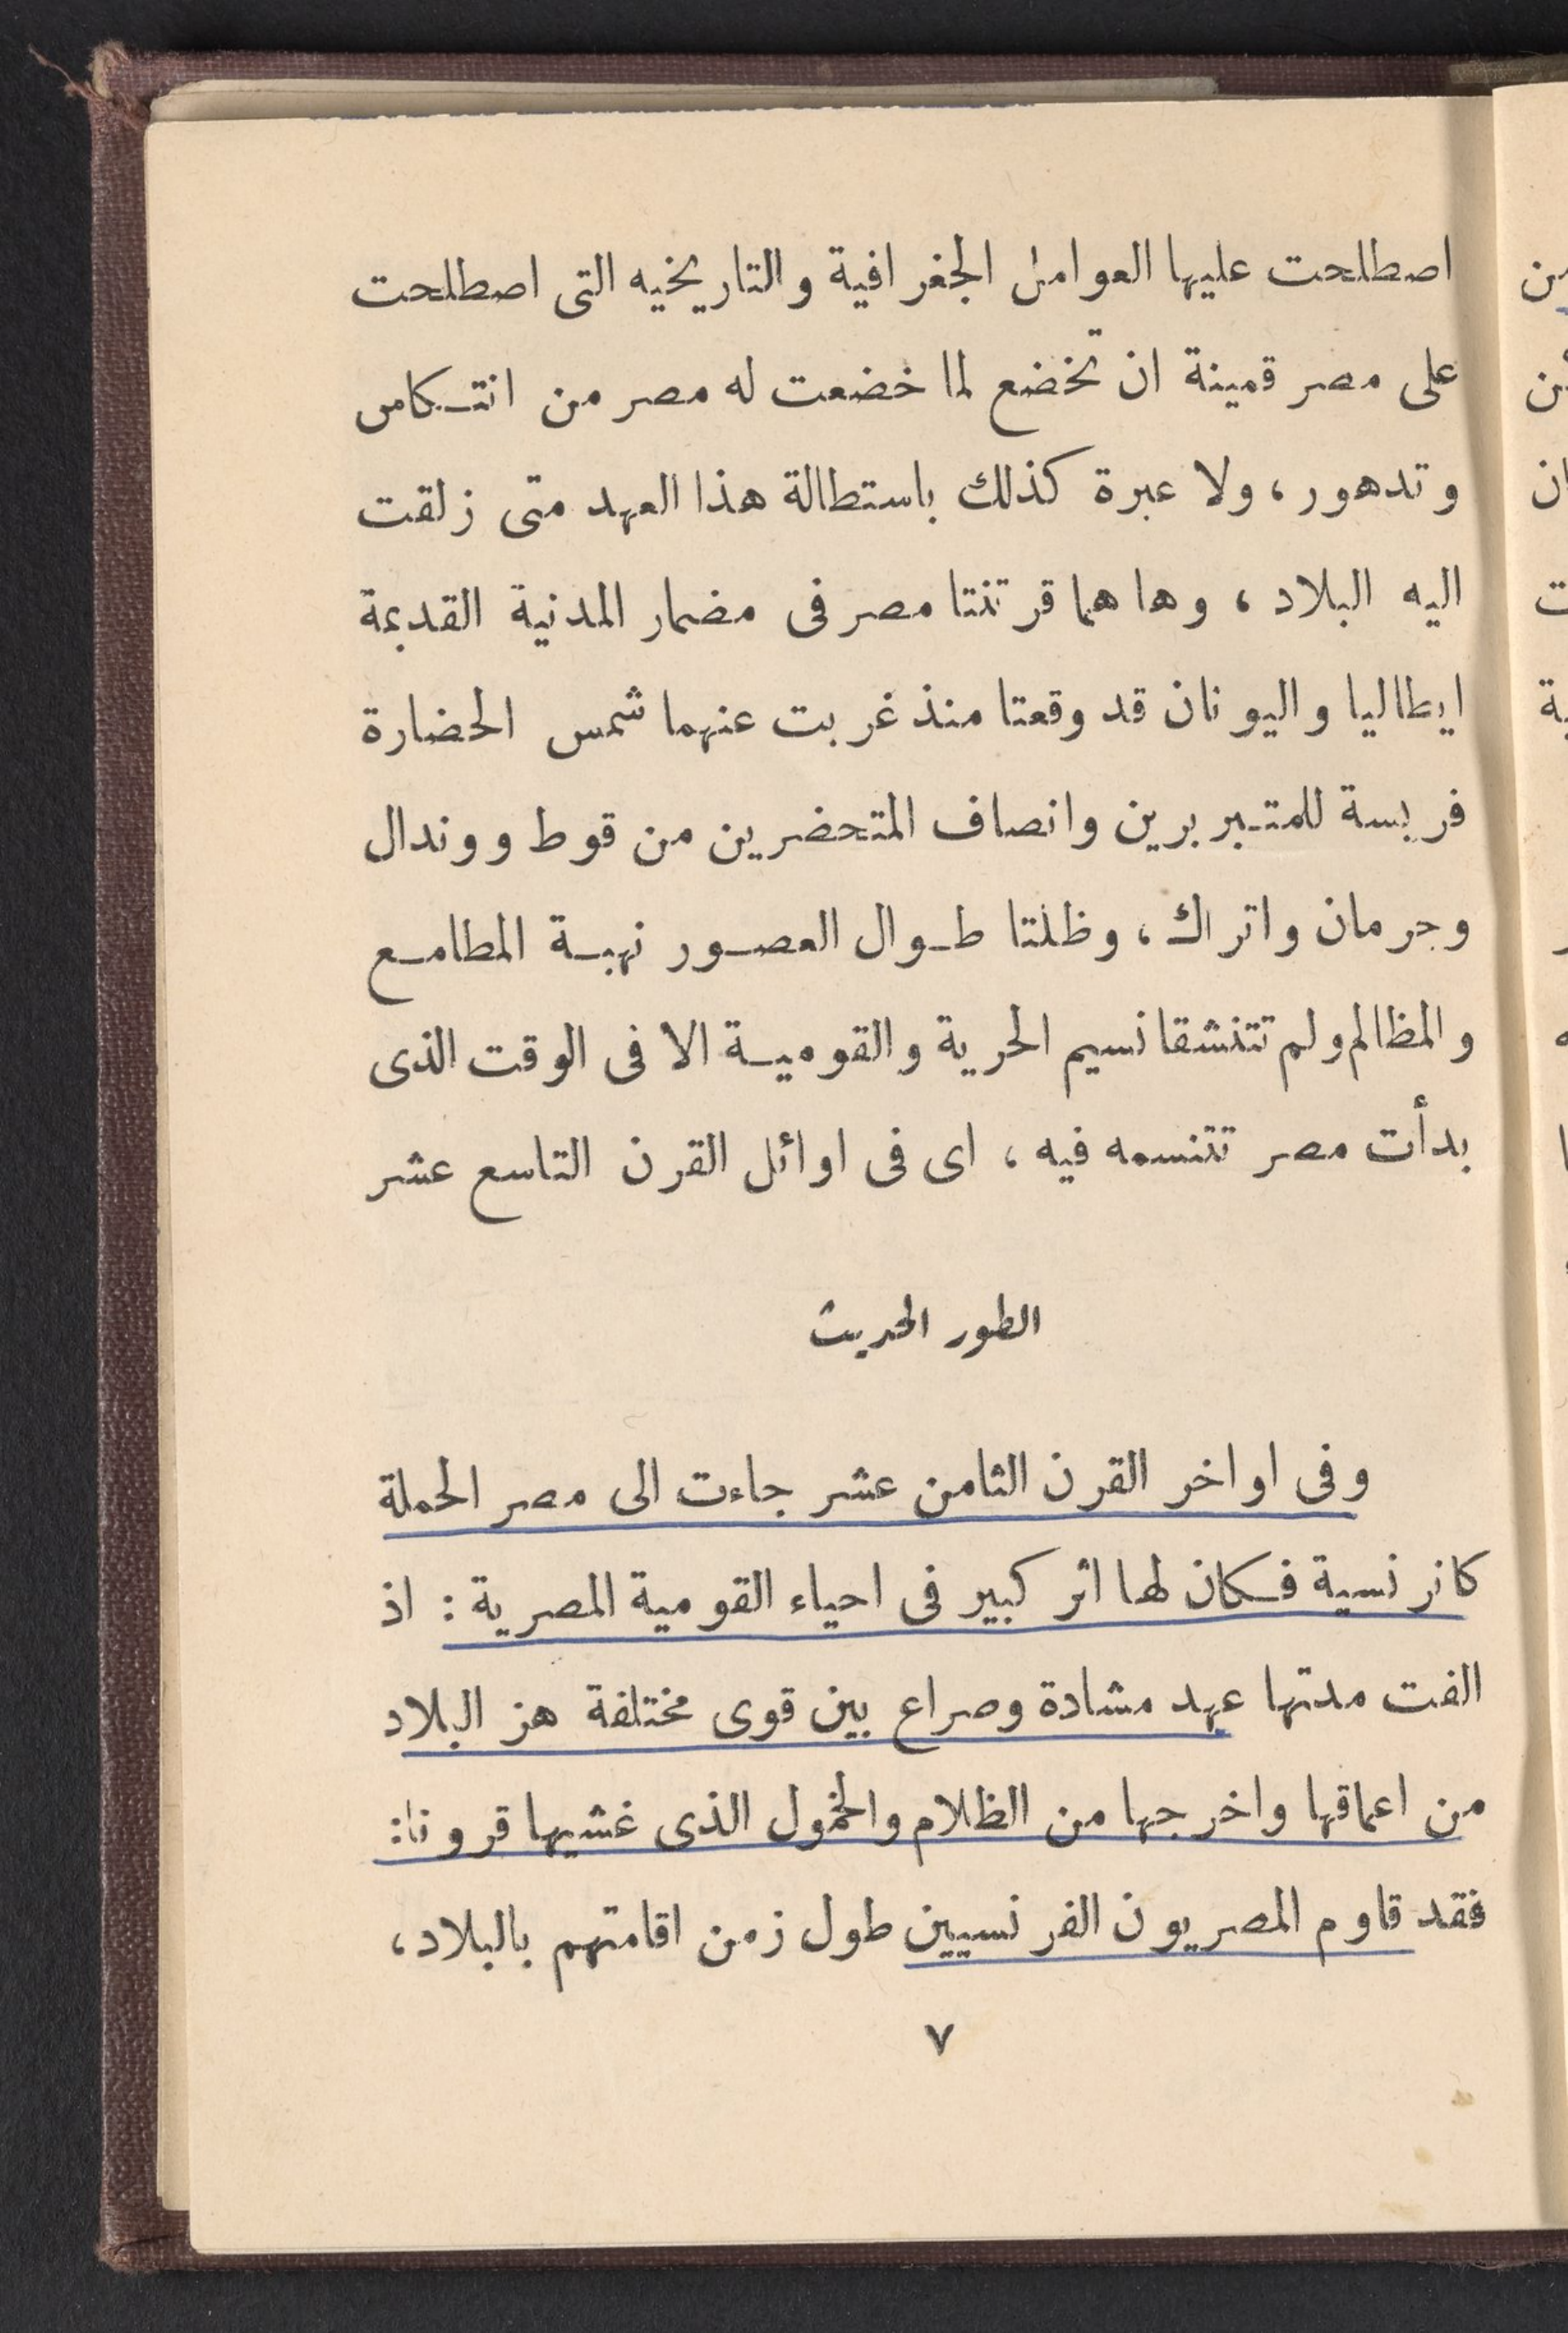 اصطلحت عليها العوامل الجغرافية والتاريخيه التى اصطلحت
على مصر قمينة ان تخضع لما خضعت له مصر من انتكاس
وتدهور، ولا عبرة كذلك باستطالة هذا العهد متى زلقت
اليه البلاد، وها هما قرتنتا مصر فى مضمار المدنية القديمة
ايطاليا واليونان قد وقعتا منذ غربت عنهما شمس الحضارة
فريسة للمتبربرين وانصاف المتحضرين من قوط ووندال
وجرمان واتراك، وظلتا طوال العصور نهبة المطامع
والمظالم ولم تتنشقا نسيم الحرية والقومية الا فى الوقت الذى
بدأت مصر تتنسمه فيه، اى فى اوائل القرن التاسع عشر
الطور الحديث
وفى اواخر القرن الثامن عشر جاءت الى مصر الحملة
كانرنسية فكان لها اثر كبير فى احياء القومية المصرية: اذ
الفت مدتها عهد مشادة وصراع بين قوى مختلفة هز البلاد
من اعماقها واخرجها من الظلام والخمول الذى غشيها قرونا:
فقد قاوم المصريون الفرنسيين طول زمن اقامتهم بالبلاد،
٧